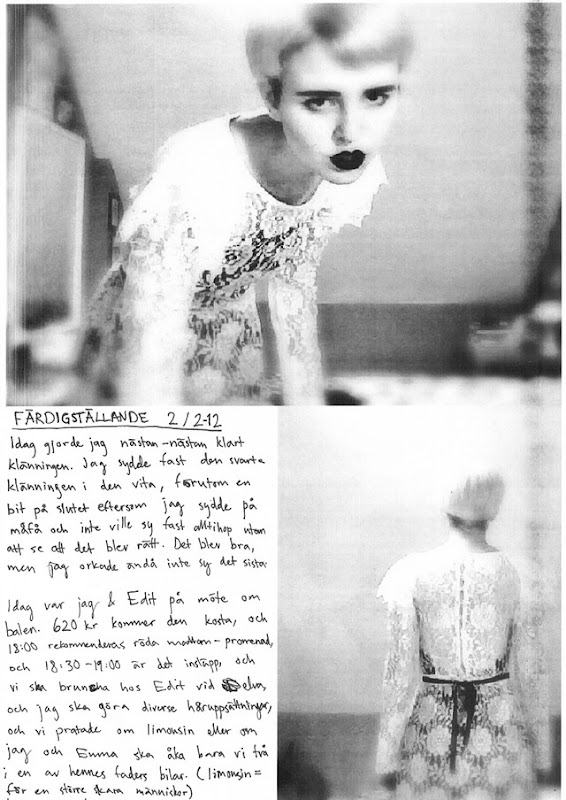 FÄRDIGSTÄLLANDE 2/2-12
Idag gjorde jag nästan-nästan klart
klänningen. Jag sydde fast den svarta
klänningen i den vita, förutom en
bit på slutet eftersom jag sydde på
måfå och inte ville sy fast alltihop utan
att se att det blev rätt. Det blev bra,
men jag orkade ändå inte sy det sista.
Idag var jag & Edit på möte om
balen. 620 kr kommer den kosta, och
18:00 rekommenderas röda mattan-promenad,
och 18:30-19:00 är det insläpp, och
vi ska bruncha hos Edit vid elva,
och jag ska göra diverse håruppsättningar,
och vi pratade om limousin eller om
jag och Emma ska åka bara vi två
i en av hennes faders bilar. (limousin=
för en större skara människor)